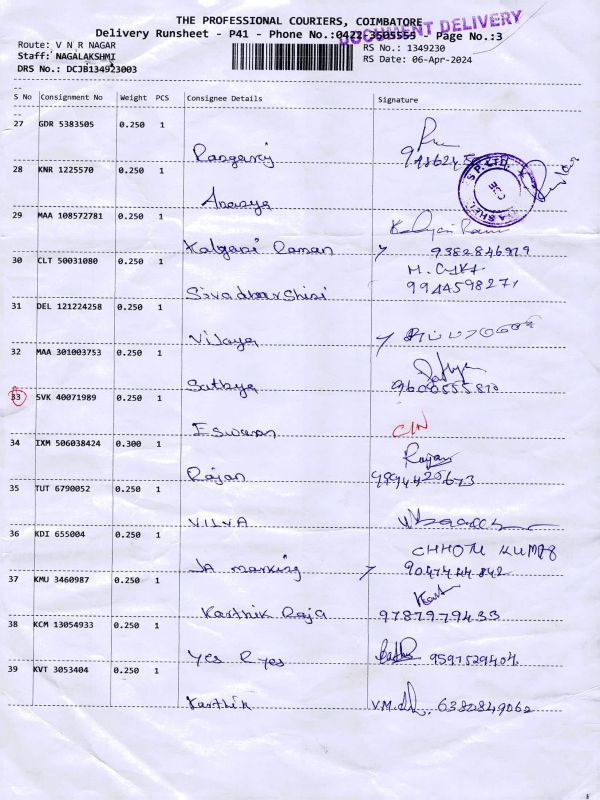 THE PROFESSIONAL COURIERS, COIMBATORE
DOCUMENT DELIVERY
Delivery Runsheet - P41 - Phone No.:0422-3505555 Page No.:3
Route: V N R NAGAR
RS No.: 1349230
Staff: NAGALAKSHMI
RS Date: 06-Apr-2024
DRS No.: DCJB134923003
S No Consignment No Weight PCS Consignee Details Signature
27 GDR 5383505 0.250 1
28 KNR 1225570 0.250 1
Ananya
29 MAA 108572781 0.250 1
Kalyani Raman 9382846979
30 CLT 50031080 0.250 1
9944598271
31 DEL 121224258 0.250 1
Vijaya
32 MAA 301003753 0.250 1
Sathya 9600555870
33 SVK 40071989 0.250 1
Eswaran
34 IXM 506038424 0.300 1
Rajan
Rajan
35 TUT 6790052 0.250 1
VILVA
36 KDI 655004 0.250 1
CHHOTU KUMAR
JA marking
37 KMU 3460987 0.250 1
Karthik Raja 9787979433
38 KCM 13054933 0.250 1
Yes R yes 9597529404
39 KVT 3053404 0.250 1
Karthik 6380849062